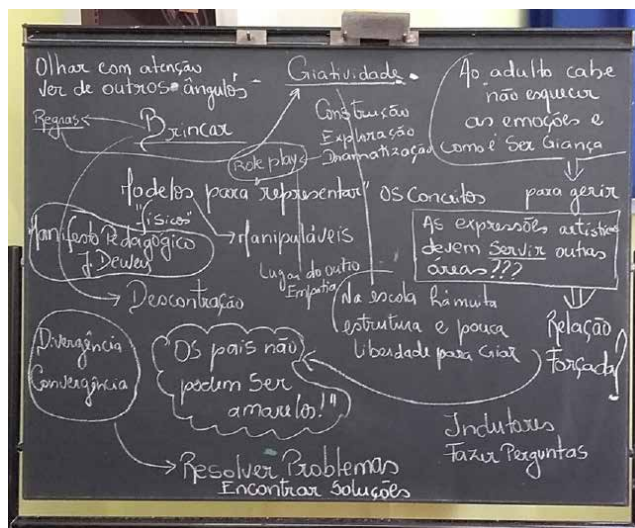 Olhar com atenção
ver de outros ângulos
Criatividade
Ao adulto cabe
não esquecer
as emoções e
como é Ser Criança
Regras
Brincar
Construção
Exploração
Dramatização
Role play
Modelos para "representar" os conceitos
"físicos"
para gerir
Manifesto Pedagógico
J. Dewey
Manipuláveis
Lugar do outro
Empatia
As expressões artísticas
devem Servir outras
áreas???
Descontração
Na escola há muita
estrutura e pouca
liberdade para criar
Relação
Forçada!
Divergência
Convergência
"Os pais não
podem ser
amarelos!"
Indutores
Fazer Perguntas
Resolver Problemas
Encontrar Soluções